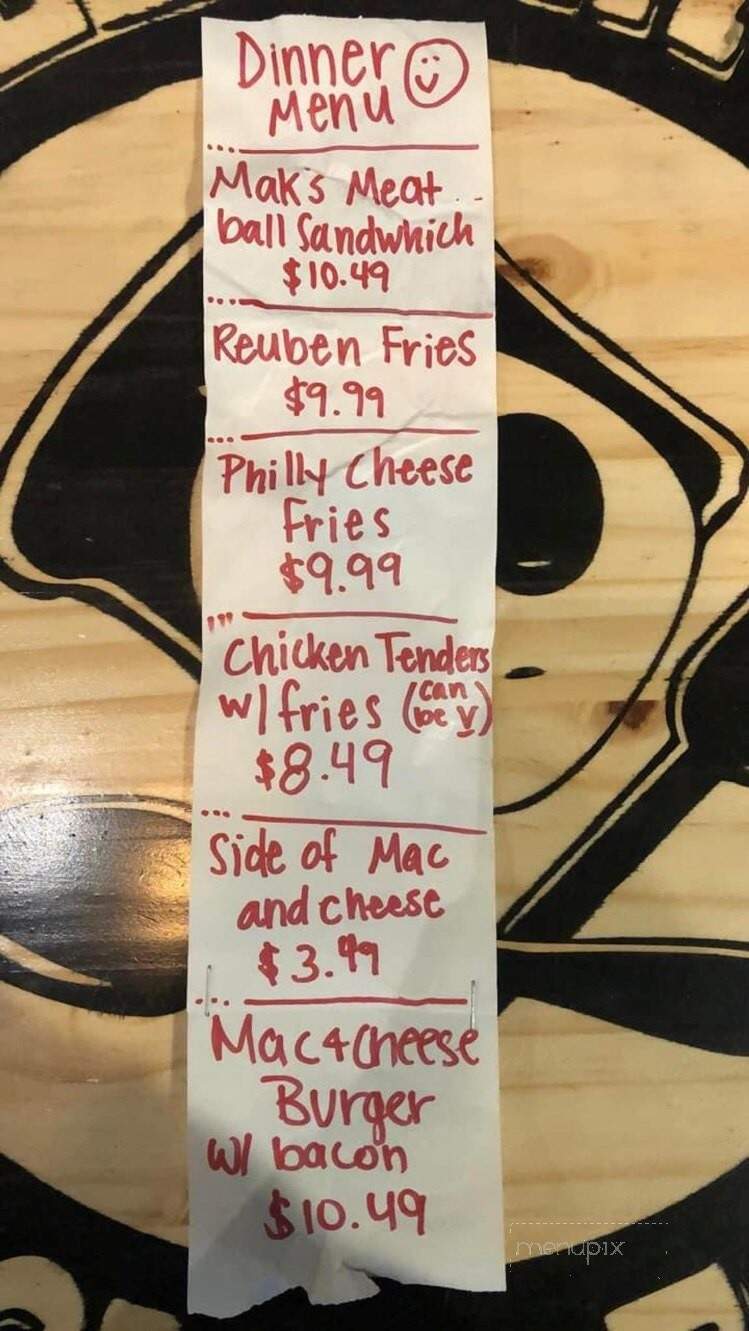 Dinner
Menu
Mak's Meat
ball Sandwhich
$10.49
Reuben Fries
$9.99
Philly Cheese
Fries
$9.99
Chicken Tenders
w/ fries (can be V)
$8.49
Side of Mac
and cheese
$3.49
Mac & Cheese
Burger
w/ bacon
$10.49
menupix